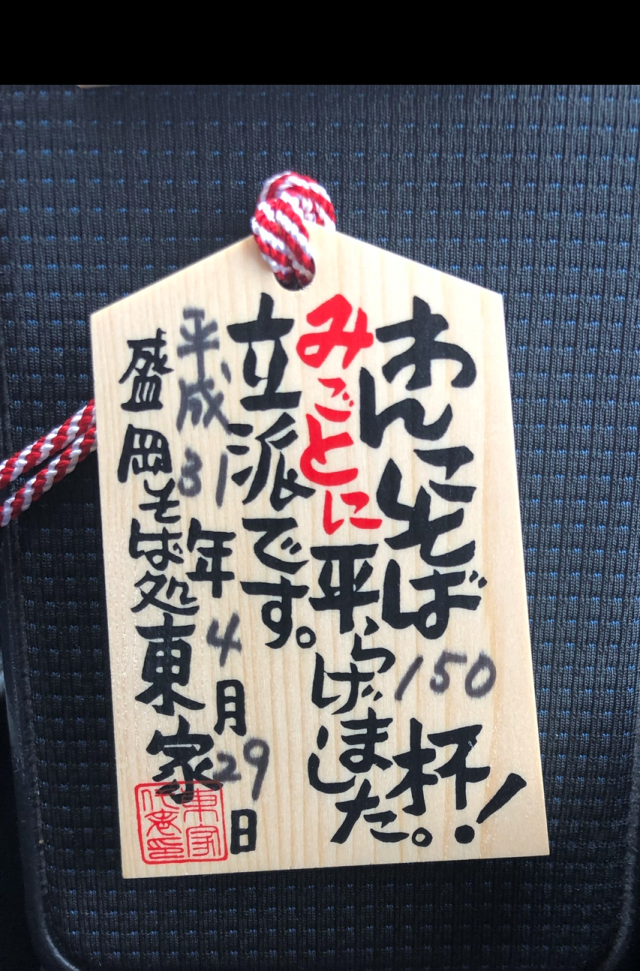 わんこそば150杯!
みごとに平らげました。
立派です。
平成31年4月29日
盛岡そば処東家
東家